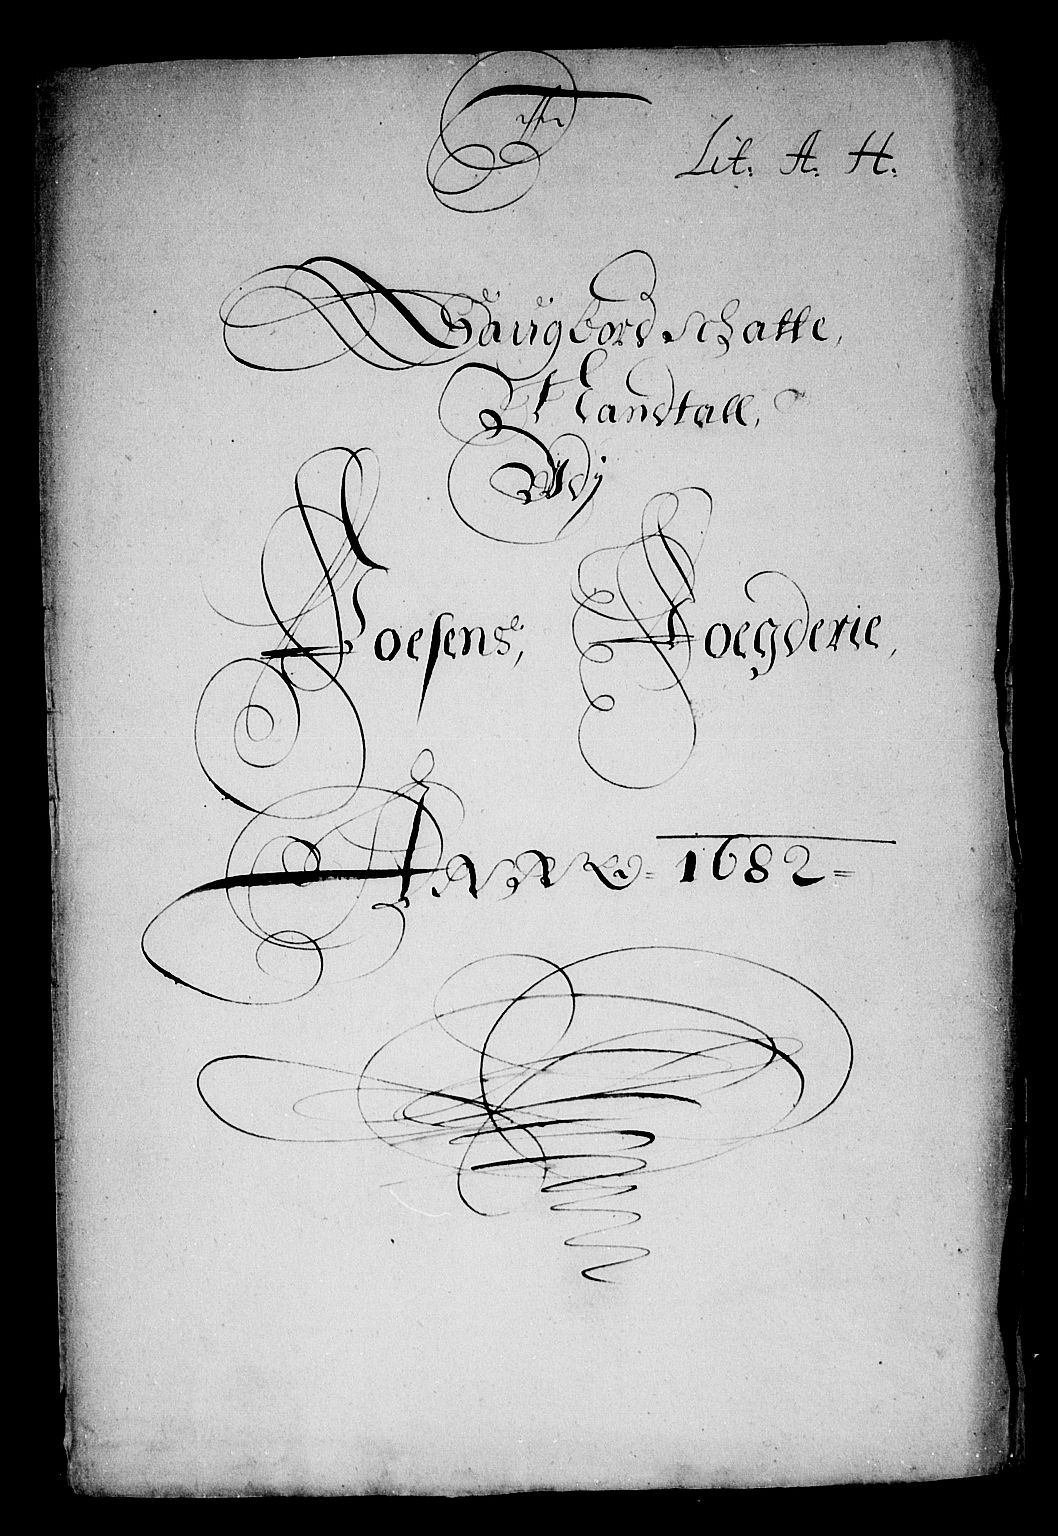 Lit. A. H.
Saugbord Schatte,
Et Landtall,
Udj
Foesens, Foegderie,
ANNO = 1682 =